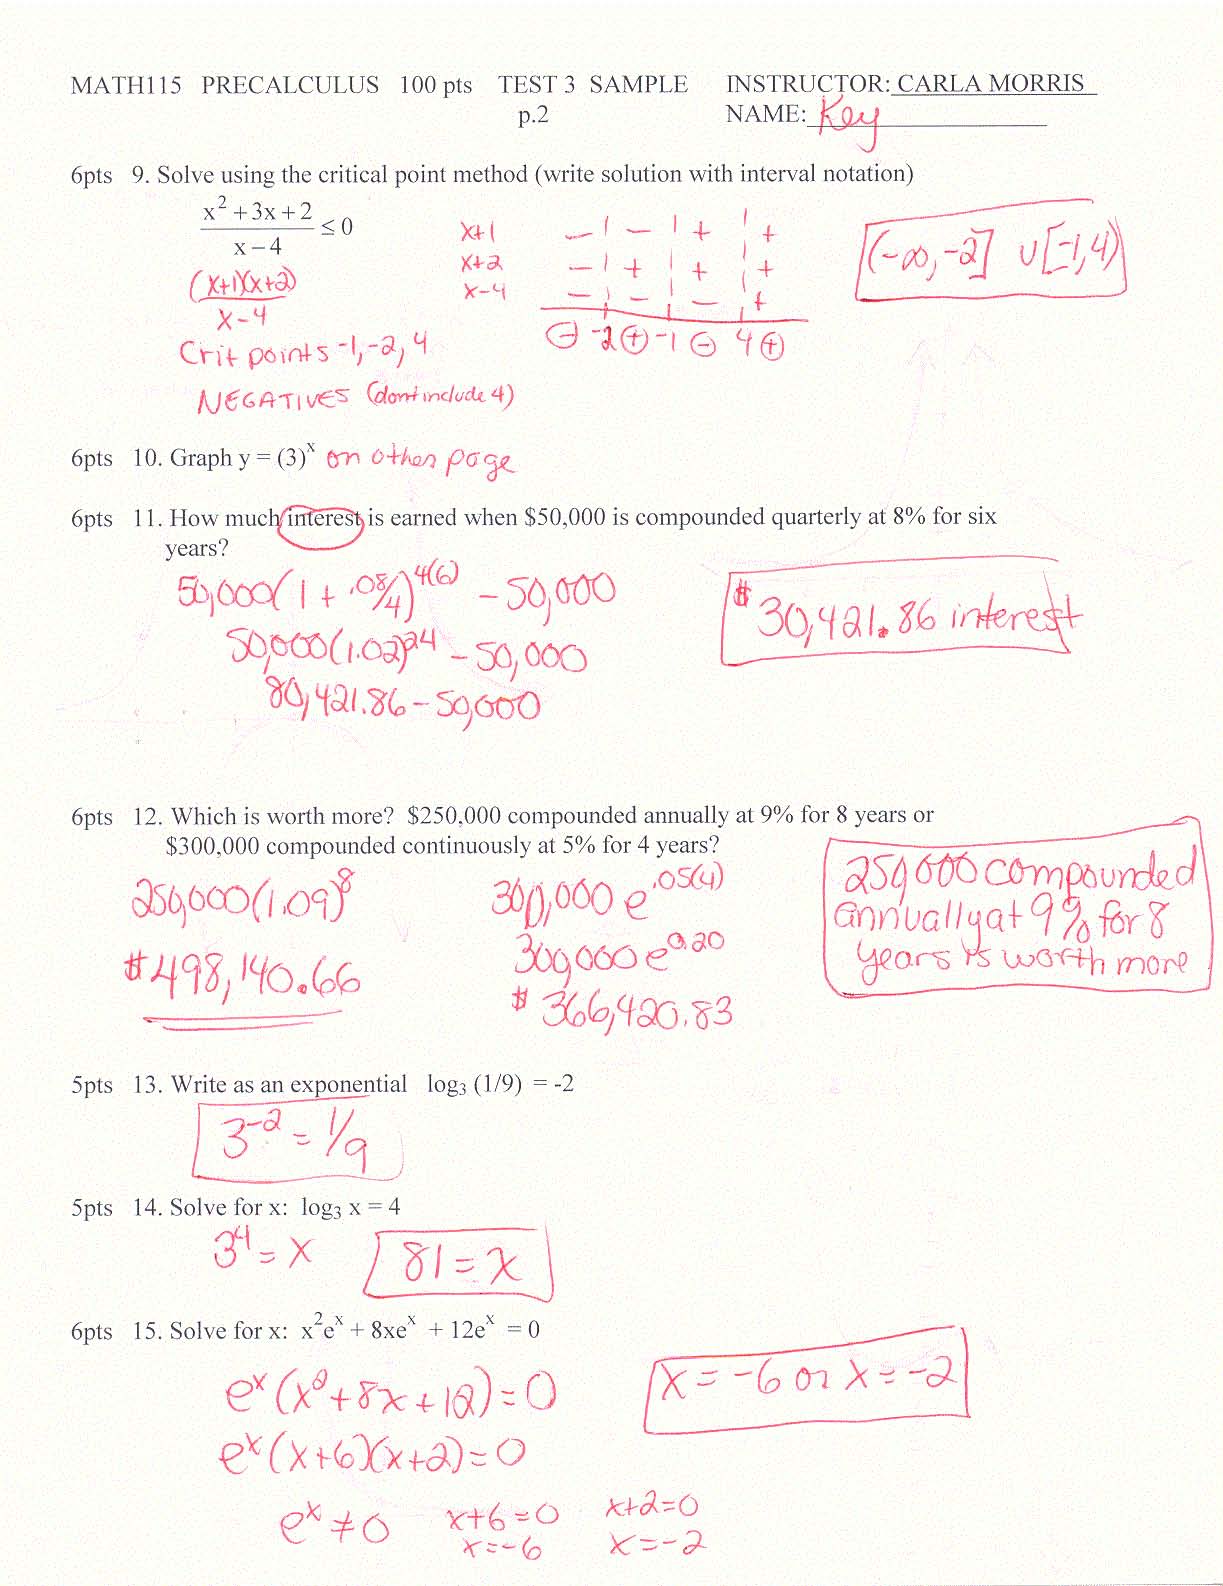 MATH115 PRECALCULUS 100 pts TEST 3 SAMPLE INSTRUCTOR: CARLA MORRIS
p.2 NAME: Key
6pts 9. Solve using the critical point method (write solution with interval notation)
(x² + 3x + 2)/(x − 4) ≤ 0
(x+1)(x+2)/(x-4)
Crit points -1, -2, 4
NEGATIVES (dont include 4)
x+1 − | − | + | +
x+2 − | + | + | +
x-4 − | − | − | +
⊖ -2 ⊕ -1 ⊖ 4 ⊕
(-∞, -2] ∪ [-1, 4)
6pts 10. Graph y = (3)ˣ on other page
6pts 11. How much interest is earned when $50,000 is compounded quarterly at 8% for six
years?
50,000(1 + .08/4)^4(6) - 50,000
50,000(1.02)^24 - 50,000
80,421.86 - 50,000
$30,421.86 interest
6pts 12. Which is worth more? $250,000 compounded annually at 9% for 8 years or
$300,000 compounded continuously at 5% for 4 years?
250,000(1.09)^8
$498,140.66
300,000 e^.05(4)
300,000 e^0.20
$ 366,420.83
250,000 compounded
annually at 9% for 8
years is worth more
5pts 13. Write as an exponential log₃ (1/9) = -2
3^-2 = 1/9
5pts 14. Solve for x: log₃ x = 4
3^4 = x 81 = x
6pts 15. Solve for x: x²eˣ + 8xeˣ + 12eˣ = 0
eˣ(x² + 8x + 12) = 0
eˣ(x+6)(x+2) = 0
eˣ ≠ 0 x+6=0 x+2=0
x=-6 x=-2
x = -6 or x = -2